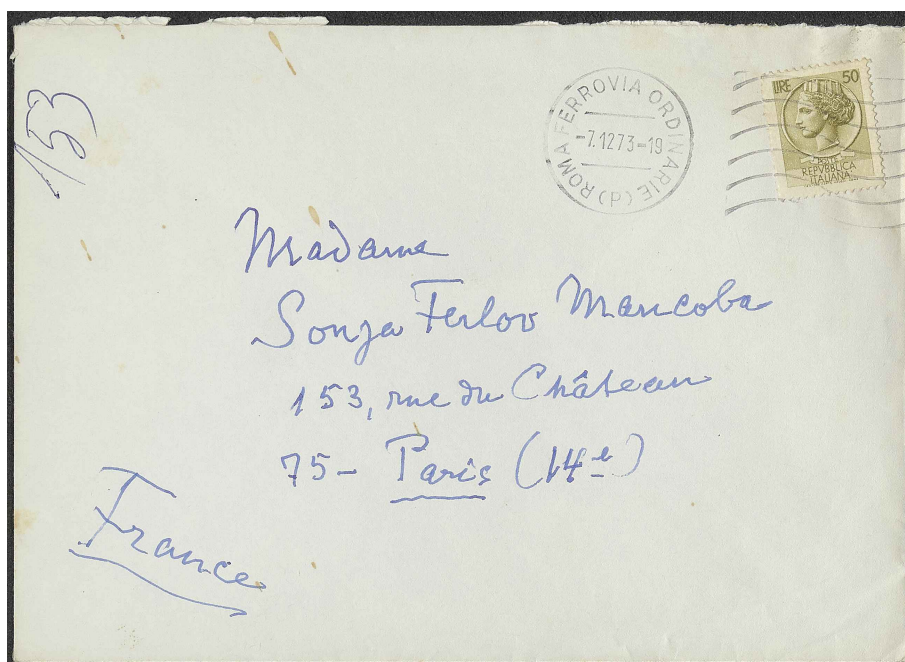 153
ROMA FERROVIA ORDINARIE (P)
-7.1273-19
LIRE 50
REPVBBLICA
ITALIANA
Madame
Sonja Ferlov Mancoba
153, rue du Château
75- Paris (14e)
France